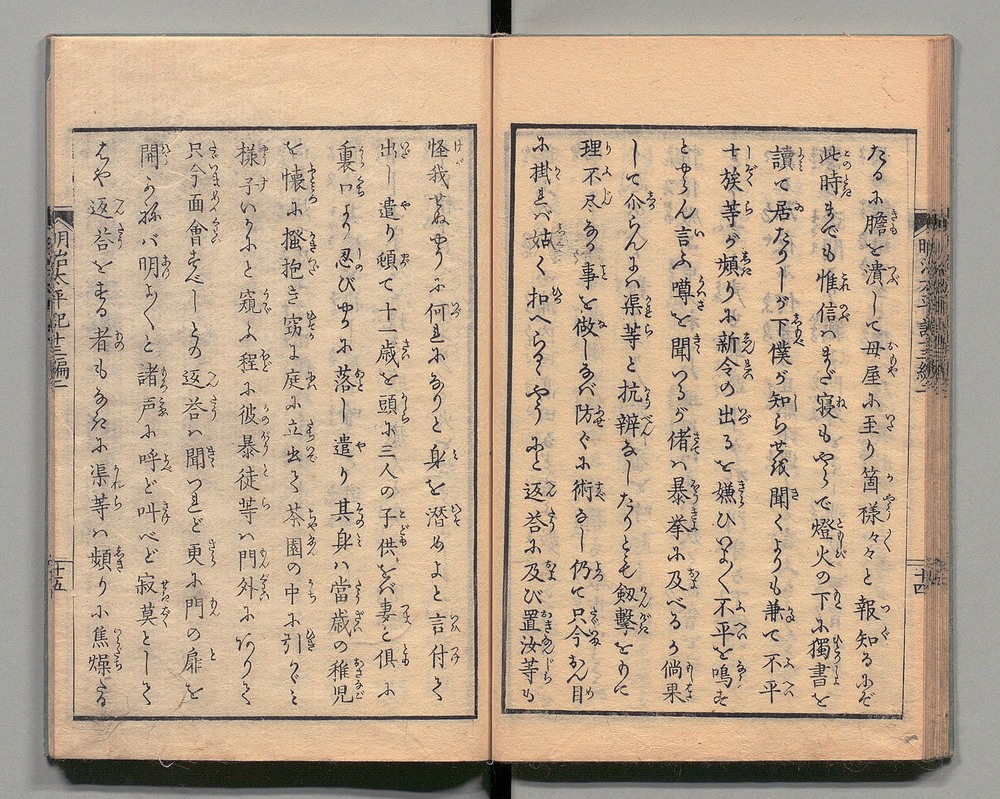 たるに膽を潰して母屋に至り箇様々々と報知るにぞ
此時までも惟信ハまだ寝もやらで燈火の下に獨書を
讀て居たりしが下僕が知らせを聞くよりも兼て不平
士族等が頻りに新令の出るを嫌ひいよく不平を鳴ず
とやらん言ふ噂を聞つるが偖ハ暴挙に及べるか倘果
して尒らんにハ渠等と抗辨なしたりとも劔撃をもて
理不尽なる事を做しなバ防ぐに術なし仍て只今おん目
に掛れバ姑く扣へらるゝやうにと返荅に及び置汝等も
明治太平記十三編二
十四
怪我せぬやうに何れになりと身を潜めよと言付て
出し遣り頓て十一歳を頭に三人の子供をバ妻と俱に
裏口より忍びやかに落し遣り其身ハ當歳の稚児
を懐に掻抱き窈に庭に立出て茶園の中に引そミ
様子いかにと窺ふ程に彼暴徒等ハ門外にありて
只今面會すべしとの返荅ハ聞つれど更に門の扉を
開かねバ明よくと諸声に呼ど叫べど寂莫として
はや返荅をする者もなきに渠等ハ頻りに焦燥たる
明治太平記十三編二
十五